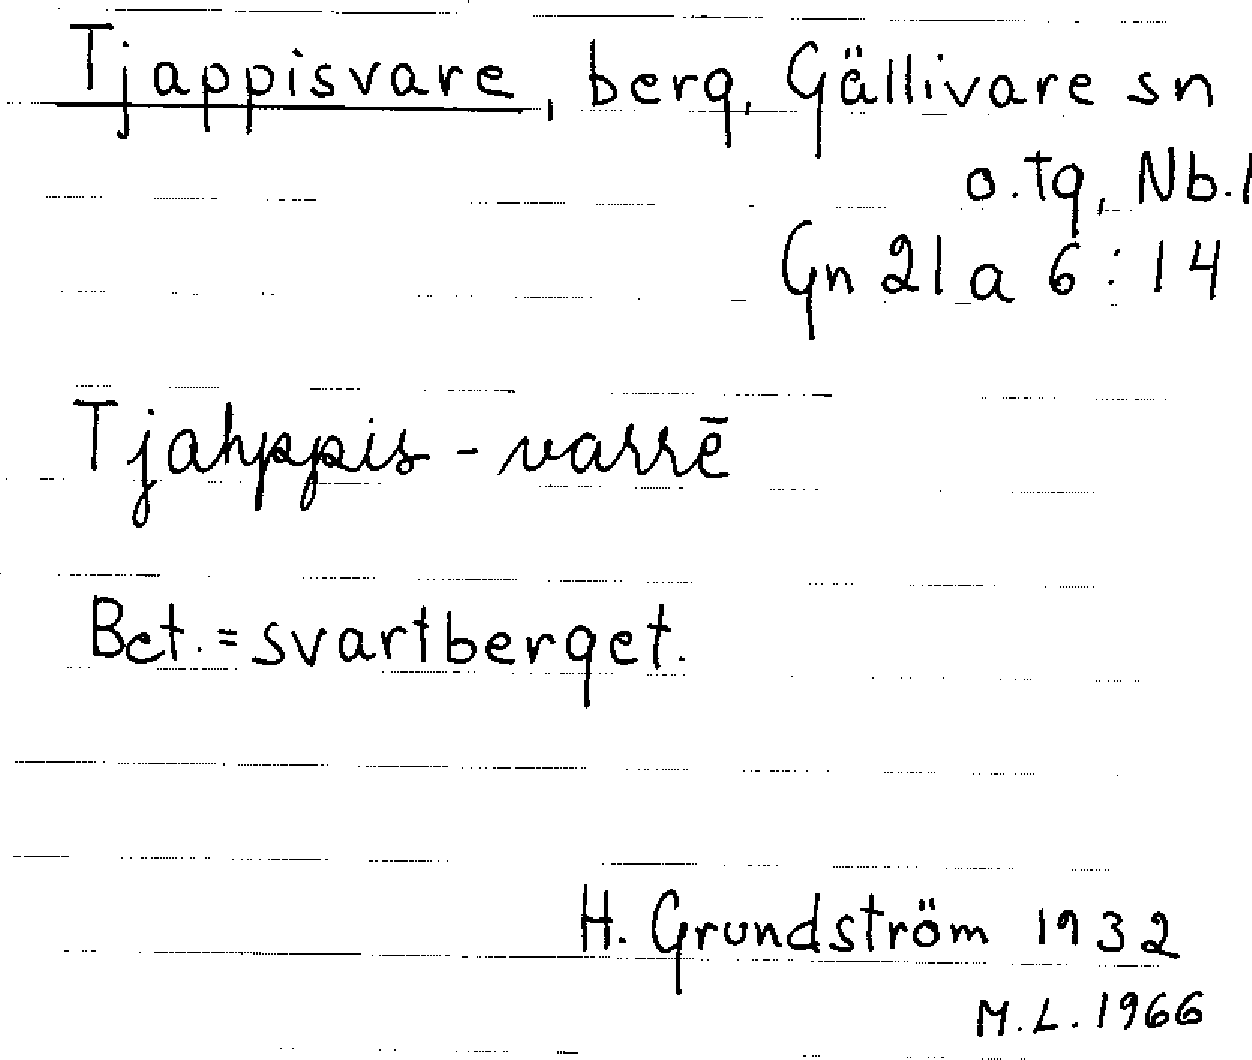 Tjappisvare, berg, Gällivare sn
o. tg, Nb. l
Gn 21 a 6:14
Tjahppis-varrē
Bet. = svartberget.
H. Grundström 1932
M.L. 1966